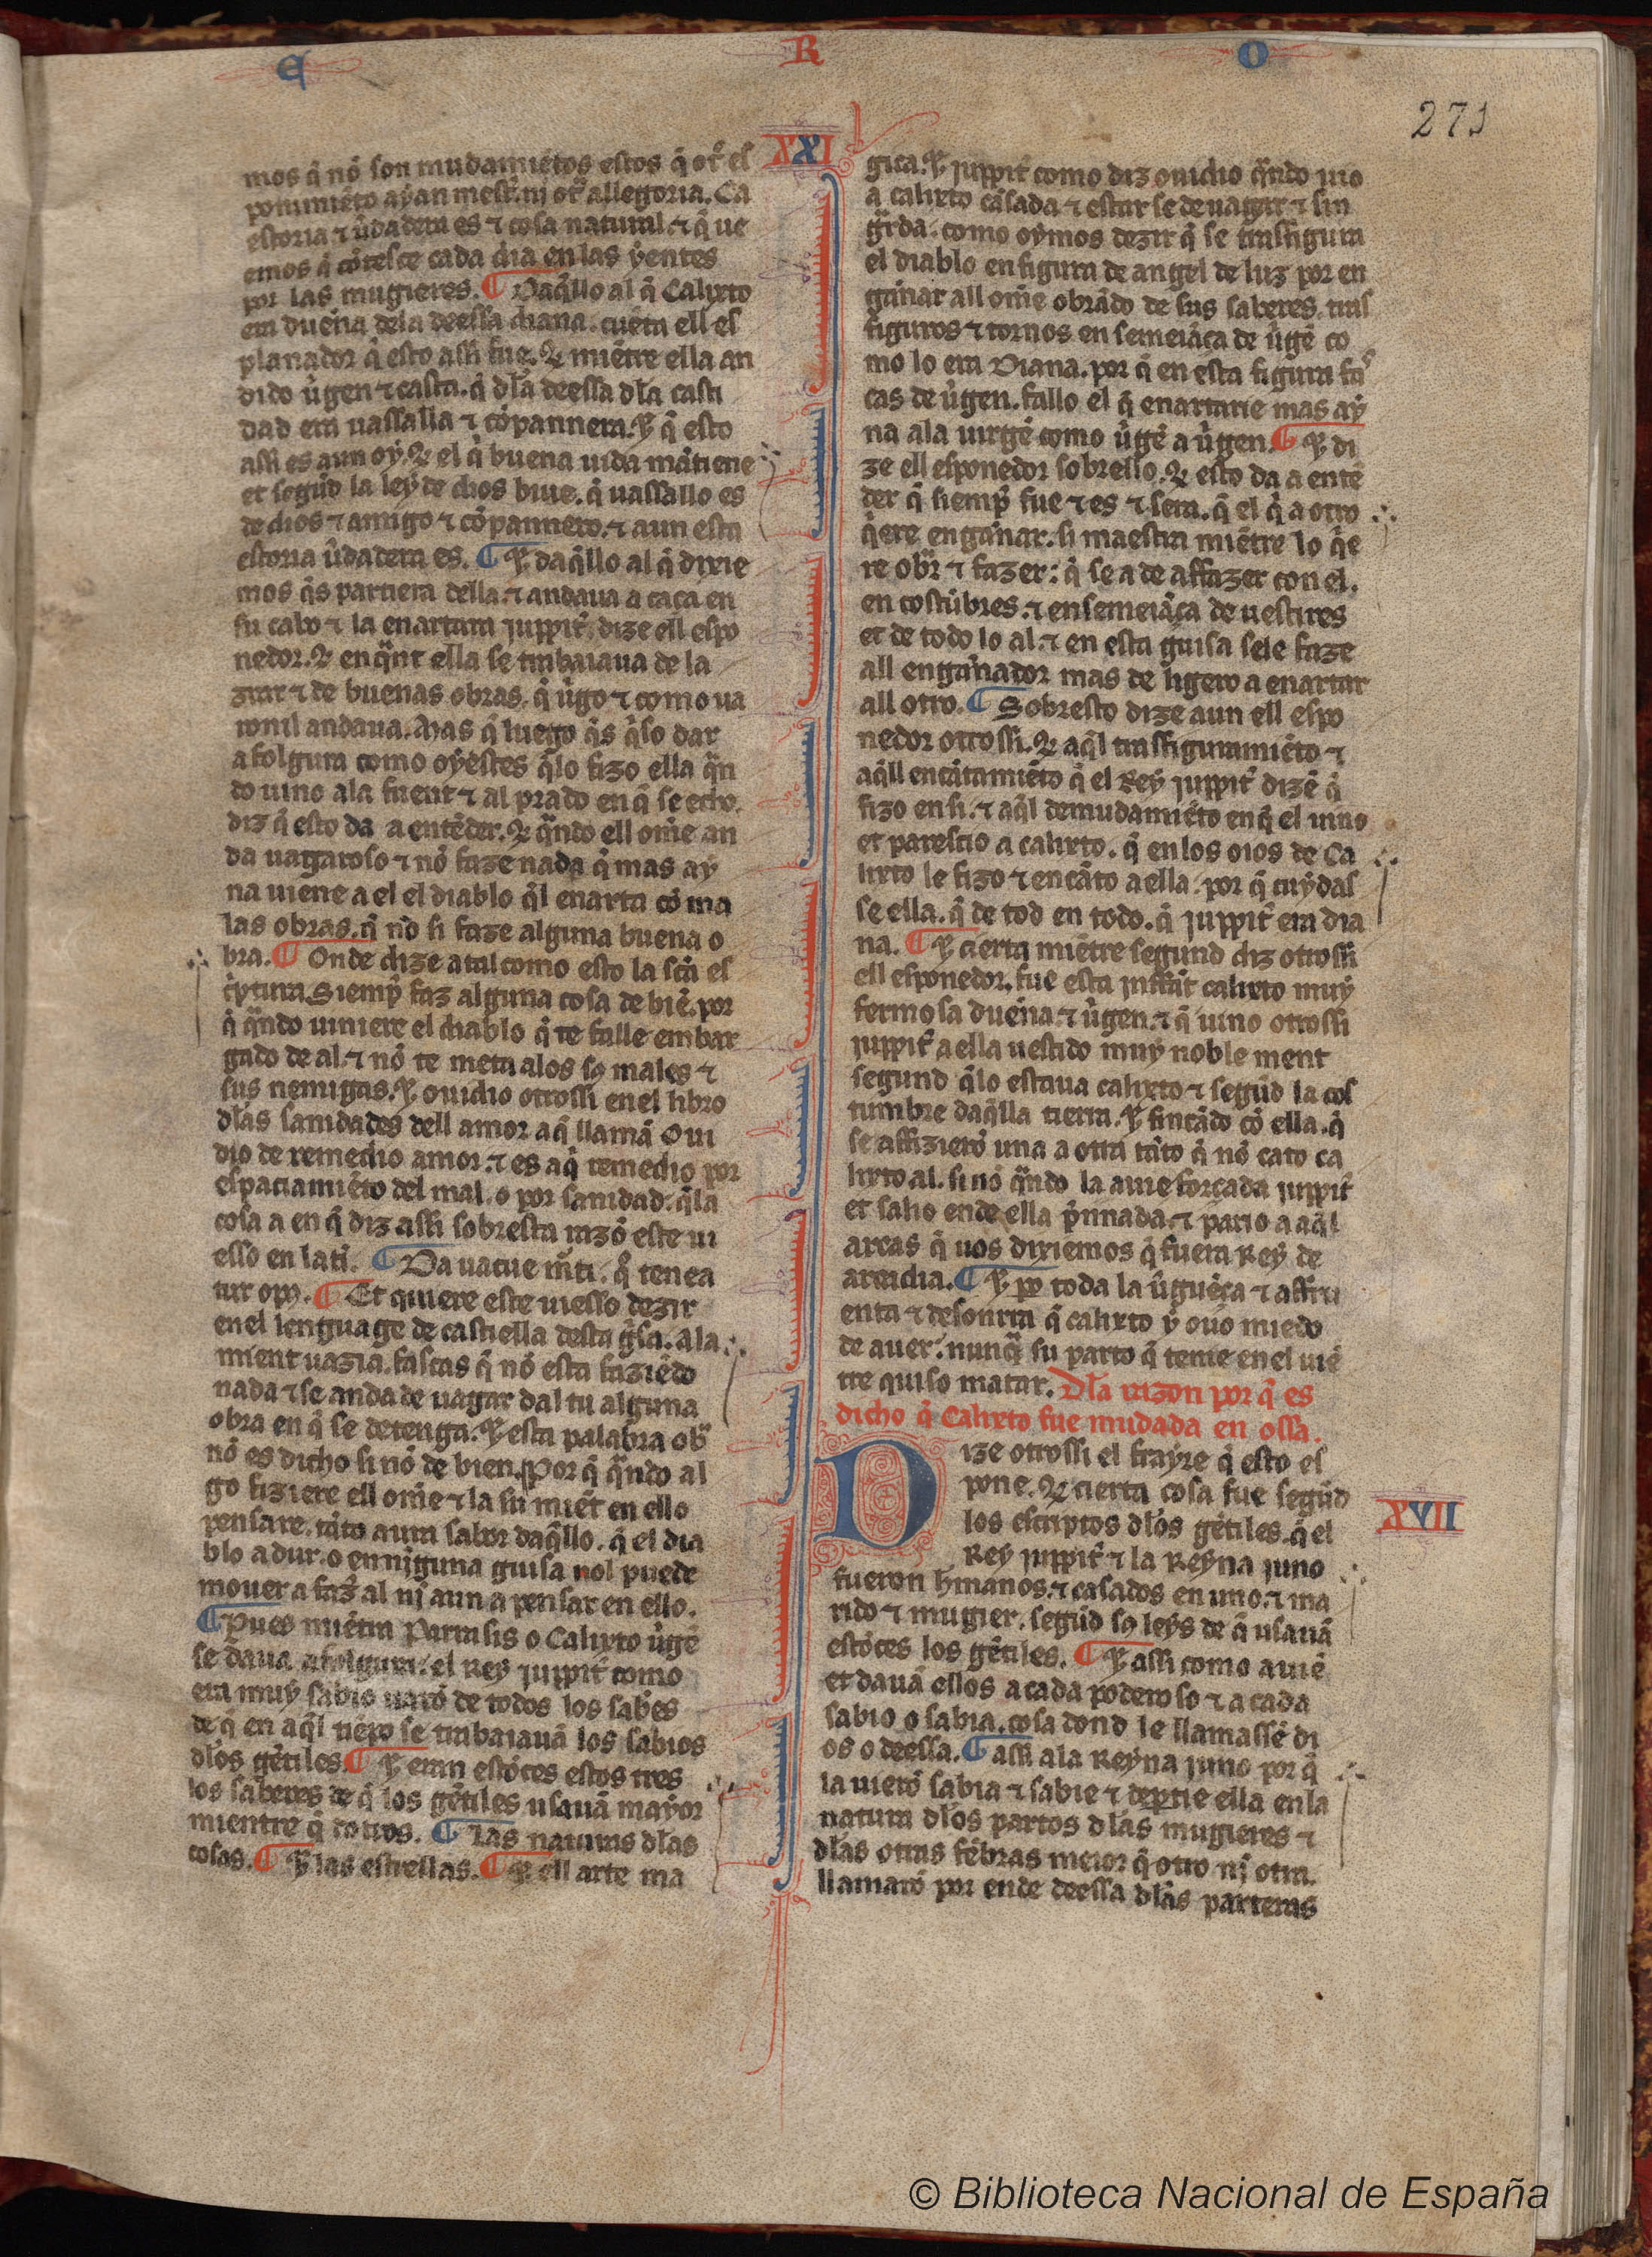 E R O
271
XXI
mos q̃ nõ son mudamiẽtos estos q̃ otr̃ es
ponimiẽto ayan mest̃. nj otr̃ allegoria. Ca
estoria ⁊ ũdadera es ⁊ cosa natural. ⁊ q̃ ue
emos q̃ cõtesce cada dia en las yentes
por las mugieres. ¶ Daq̃llo al q̃ Calixto
era duẽna dela deessa diana. cuẽta ell es
planador q̃ esto assi fue. Q̃ miẽtre ella an
dido ũgen ⁊ casta. q̃ dl̃a deessa dl̃a casti
dad era uassalla ⁊ cõpannera. Et q̃ esto
assi es aun oy. Q̃ el q̃ buena uida mãtiene
et segũd la ley de dios biue. q̃ uassallo es
de dios ⁊ amigo ⁊ cõpannero. ⁊ aun esta
estoria ũdadera es. ¶ Et daq̃llo al q̃ dixie
mos q̃s partiera della. ⁊ andaua a caça en
su cabo ⁊ la enartara juppit̃. dize ell espo
nedor. Q̃ enq̃nt ella se trabaiaua de la
zrar ⁊ de buenas obras. q̃ ũgo ⁊ como ua
ronil andaua. Mas q̃ luego q̃s q̃so dar
a folgura como oyestes q̃lo fizo ella q̃n
do uino ala fuent ⁊ al prado en q̃ se echo.
diz q̃ esto da a entẽder. Q̃ q̃ndo ell om̃e an
da uagaroso ⁊ nõ faze nada q̃ mas ay
na uiene a el el diablo q̃l enarta cõ ma
las obras. q̃ nõ si faze alguna buena o
bra. ¶ Onde dize atal como esto la sc̃a es
c̃ptura. Siemp̃ faz alguna cosa de biẽ. por
q̃ q̃ndo uiniere el diablo q̃ te falle embar
gado de al. ⁊ nõ te meta alos sꝯ males ⁊
sus nemigas. Et ouidio otrossi en el libro
dl̃as sanidades dell amor aq̃ llamã Oui
dio de remedio amor. ⁊ es aq̃ remedio por
espaciamiẽto del mal. o por sanidad. q̃la
cosa a en q̃ diz assi sobresta razõ este ui
esso en latĩ. ¶ Da uacue m̃ti. q̃ tenea
tur opꝯ. ¶ Et quiere este uiesso dezir
en el lenguage de castiella desta g̃sa. ala
mient uazia. fascas q̃ nõ esta faziẽdo
nada ⁊ se anda de uagar dal tu alguna
obra en q̃ se detenga. Et esta palabra ob̃
nõ es dicho si nõ de bien. Por q̃ q̃ndo al
go fiziere ell om̃e ⁊ la su miẽt en ello
pensare. tãto aura sabor daq̃llo. q̃ el dia
blo adur. o en njguna guisa nol puede
mouer a faz̃ al nj aun a pensar en ello.
¶ Pues miẽtra Parrasis o Calixto ũgẽ
se daua a folgura. el Rey juppit̃ como
era muy sabio uarõ de todos los sab̃es
de q̃ en aq̃l tiẽpo se trabaiauã los sabios
dl̃os gẽtiles. ¶ Et eran estõces estos tres
los saberes de q̃ los gẽtiles usauã mayor
mientre q̃ dotros. ¶ Las naturas dl̃as
cosas. ¶ Et las estrellas. ¶ Et ell arte ma
gica. Et juppit̃ como diz ouidio q̃ndo uio
a calixto cãsada ⁊ estar se de uagar ⁊ sin
g̃rda. como oymos dezir q̃ se trasfigura
el diablo en figura de angel de luz por en
gãnar all om̃e obrãdo de sus saberes. tras
figuros ⁊ tornos en semeiãça de ũgẽ co
mo lo era Diana. por q̃ en esta figura fa᷒
cas de ũgen. fallo el q̃ enartarie mas ay
na ala uirgẽ como ũgẽ a ũgen. ¶ Et di
ze ell esponedor sobrello. Q̃ esto da a entẽ
der q̃ siemp̃ fue ⁊ es ⁊ sera. q̃ el q̃ a otro
q̃ere engãnar. si maestra miẽtre lo q̃e
re ob̃r ⁊ fazer: q̃ se a de affazer con el.
en costũbres. ⁊ en semeiãça de uestires
et de todo lo al. ⁊ en esta guisa sele faze
all engãnador mas de ligero a enartar
all otro. ¶ Sobresto dize aun ell espo
nedor otrossi. Q̃ aq̃l trasfiguramiẽto ⁊
aq̃ll encãtamiẽto q̃ el Rey juppit̃ dizẽ q̃
fizo en si. ⁊ aq̃l demudamiẽto en q̃ el uino
et parescio a calixto. q̃ en los oios de Ca
lixto le fizo ⁊ encãto a ella. por q̃ cuydas
se ella. q̃ de tod en todo. q̃ juppit̃ era dia
na. ¶ Et cierta miẽtre segund diz otrossi
ell esponedor. fue esta inffãt calixto muy
fermosa duẽna. ⁊ ũgen. ⁊ q̃ uino otrossi
juppit̃ a ella uestido muy noble ment
segund q̃lo estaua calixto ⁊ segũd la cos
tumbre daq̃lla tierra. Et fincãdo cõ ella. q̃
se affizierõ una a otra tãto q̃ nõ cato ca
lixto al. si nõ q̃ndo la auie forçada juppit̃
et salio ende ella p̃nnada. ⁊ pario a aq̃l
arcas q̃ uos dixiemos q̃ fuera Rey de
arcadia. ¶ Et por toda la ũguẽça ⁊ affru
enta ⁊ desonrra q̃ calixto y ouo miedo
de auer. nunq̃ su parto q̃ tenie en el uiẽ
tre quiso matar. Dl̃a razon por q̃ es
dicho q̃ Calixto fue mudada en ossa.
Dize otrossi el frayre q̃ esto es
pone. Q̃ cierta cosa fue segũd
los escriptos dl̃os gẽtiles. q̃ el
Rey juppit̃ ⁊ la Reyna juno
XVII
fueron h̃manos. ⁊ casados en uno. ⁊ ma
rido ⁊ mugier. segũd sꝯ leys de q̃ usauã
estõces los gẽtiles. ¶ Et assi como auiẽ
et dauã ellos a cada poderoso ⁊ a cada
sabio o sabia. cosa dond le llamassẽ di
os o deessa. ¶ assi ala Reyna juno por q̃
la uierõ sabia ⁊ sabie ⁊ deptie ella en la
natura dl̃os partos dl̃as mugieres ⁊
dl̃as otras fẽbras meior q̃ otro nj otra.
llamarõ por ende deessa dl̃as parteras
© Biblioteca Nacional de España